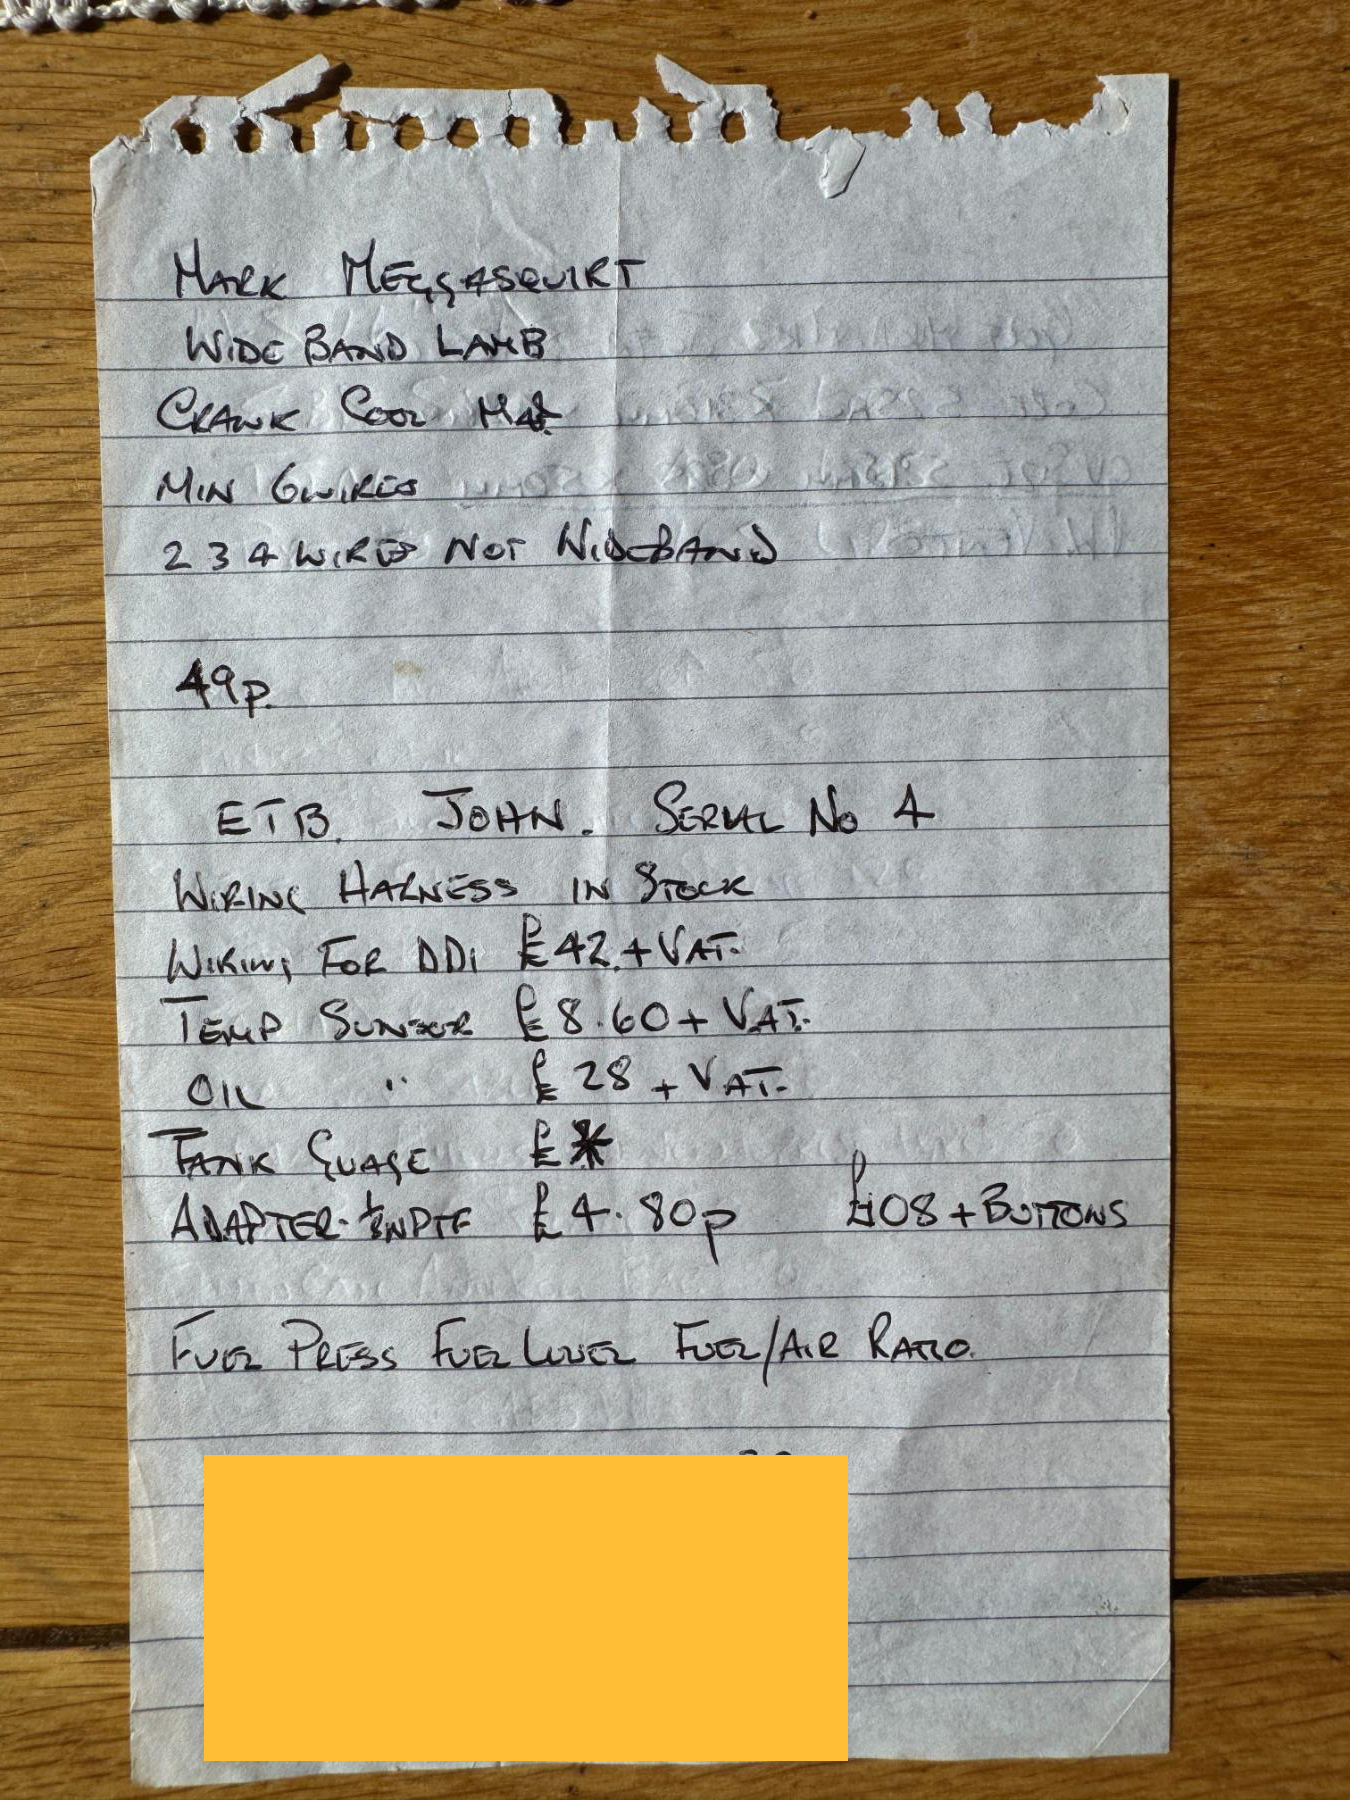 MARK MEGGASQUIRT
WIDE BAND LAMB
CRANK COOL
MIN 6 WIRES
2 3 4 WIRES NOT WIDEBAND
49p.
ETB. JOHN. SERIAL No 4
WIRING HARNESS IN STOCK
WIRING FOR DDi £42.+VAT.
TEMP SENSOR £8.60+ VAT.
OIL " £28 + VAT.
TANK GUAGE £*
ADAPTER. £4.80p £108 + BUTTONS
FUEL PRESS FUEL LEVEL FUEL/AIR RATIO.